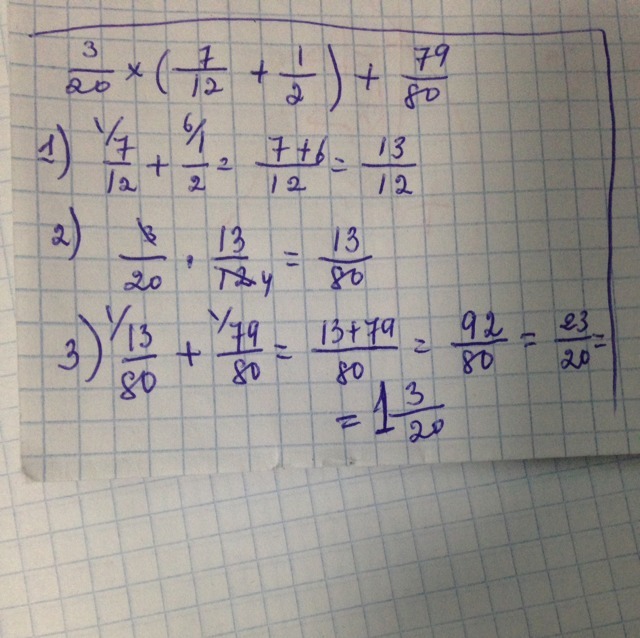 3/20 × (7/12 + 1/2) + 79/80
1) 1/ 7/12 + 6/ 1/2 = 7+6/12 = 13/12
2) 3/20 · 13/12 4 = 13/80
3) 1/ 13/80 + 1/ 79/80 = 13+79/80 = 92/80 = 23/20 =
= 1 3/20